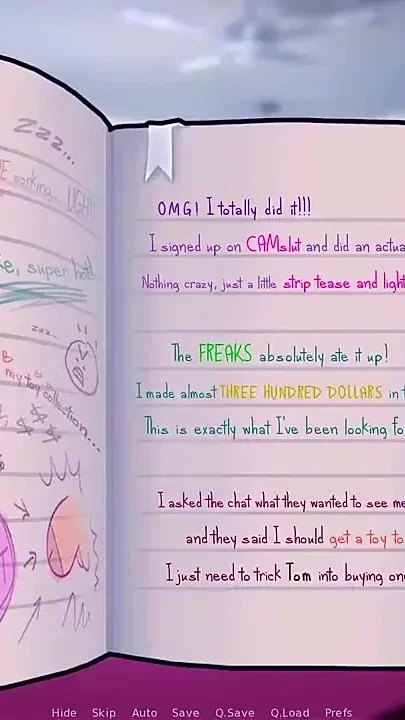 zzz...
working... UGH!!
ke, super hot!
zzz...
my toy collection...
OMG! I totally did it!!!
I signed up on CAMslut and did an actua
Nothing crazy, just a little strip tease and light
The FREAKS absolutely ate it up!
I made almost THREE HUNDRED DOLLARS in t
This is exactly what I've been looking fo
I asked the chat what they wanted to see me
and they said I should get a toy to
I just need to trick Tom into buying one
Hide Skip Auto Save Q.Save Q.Load Prefs